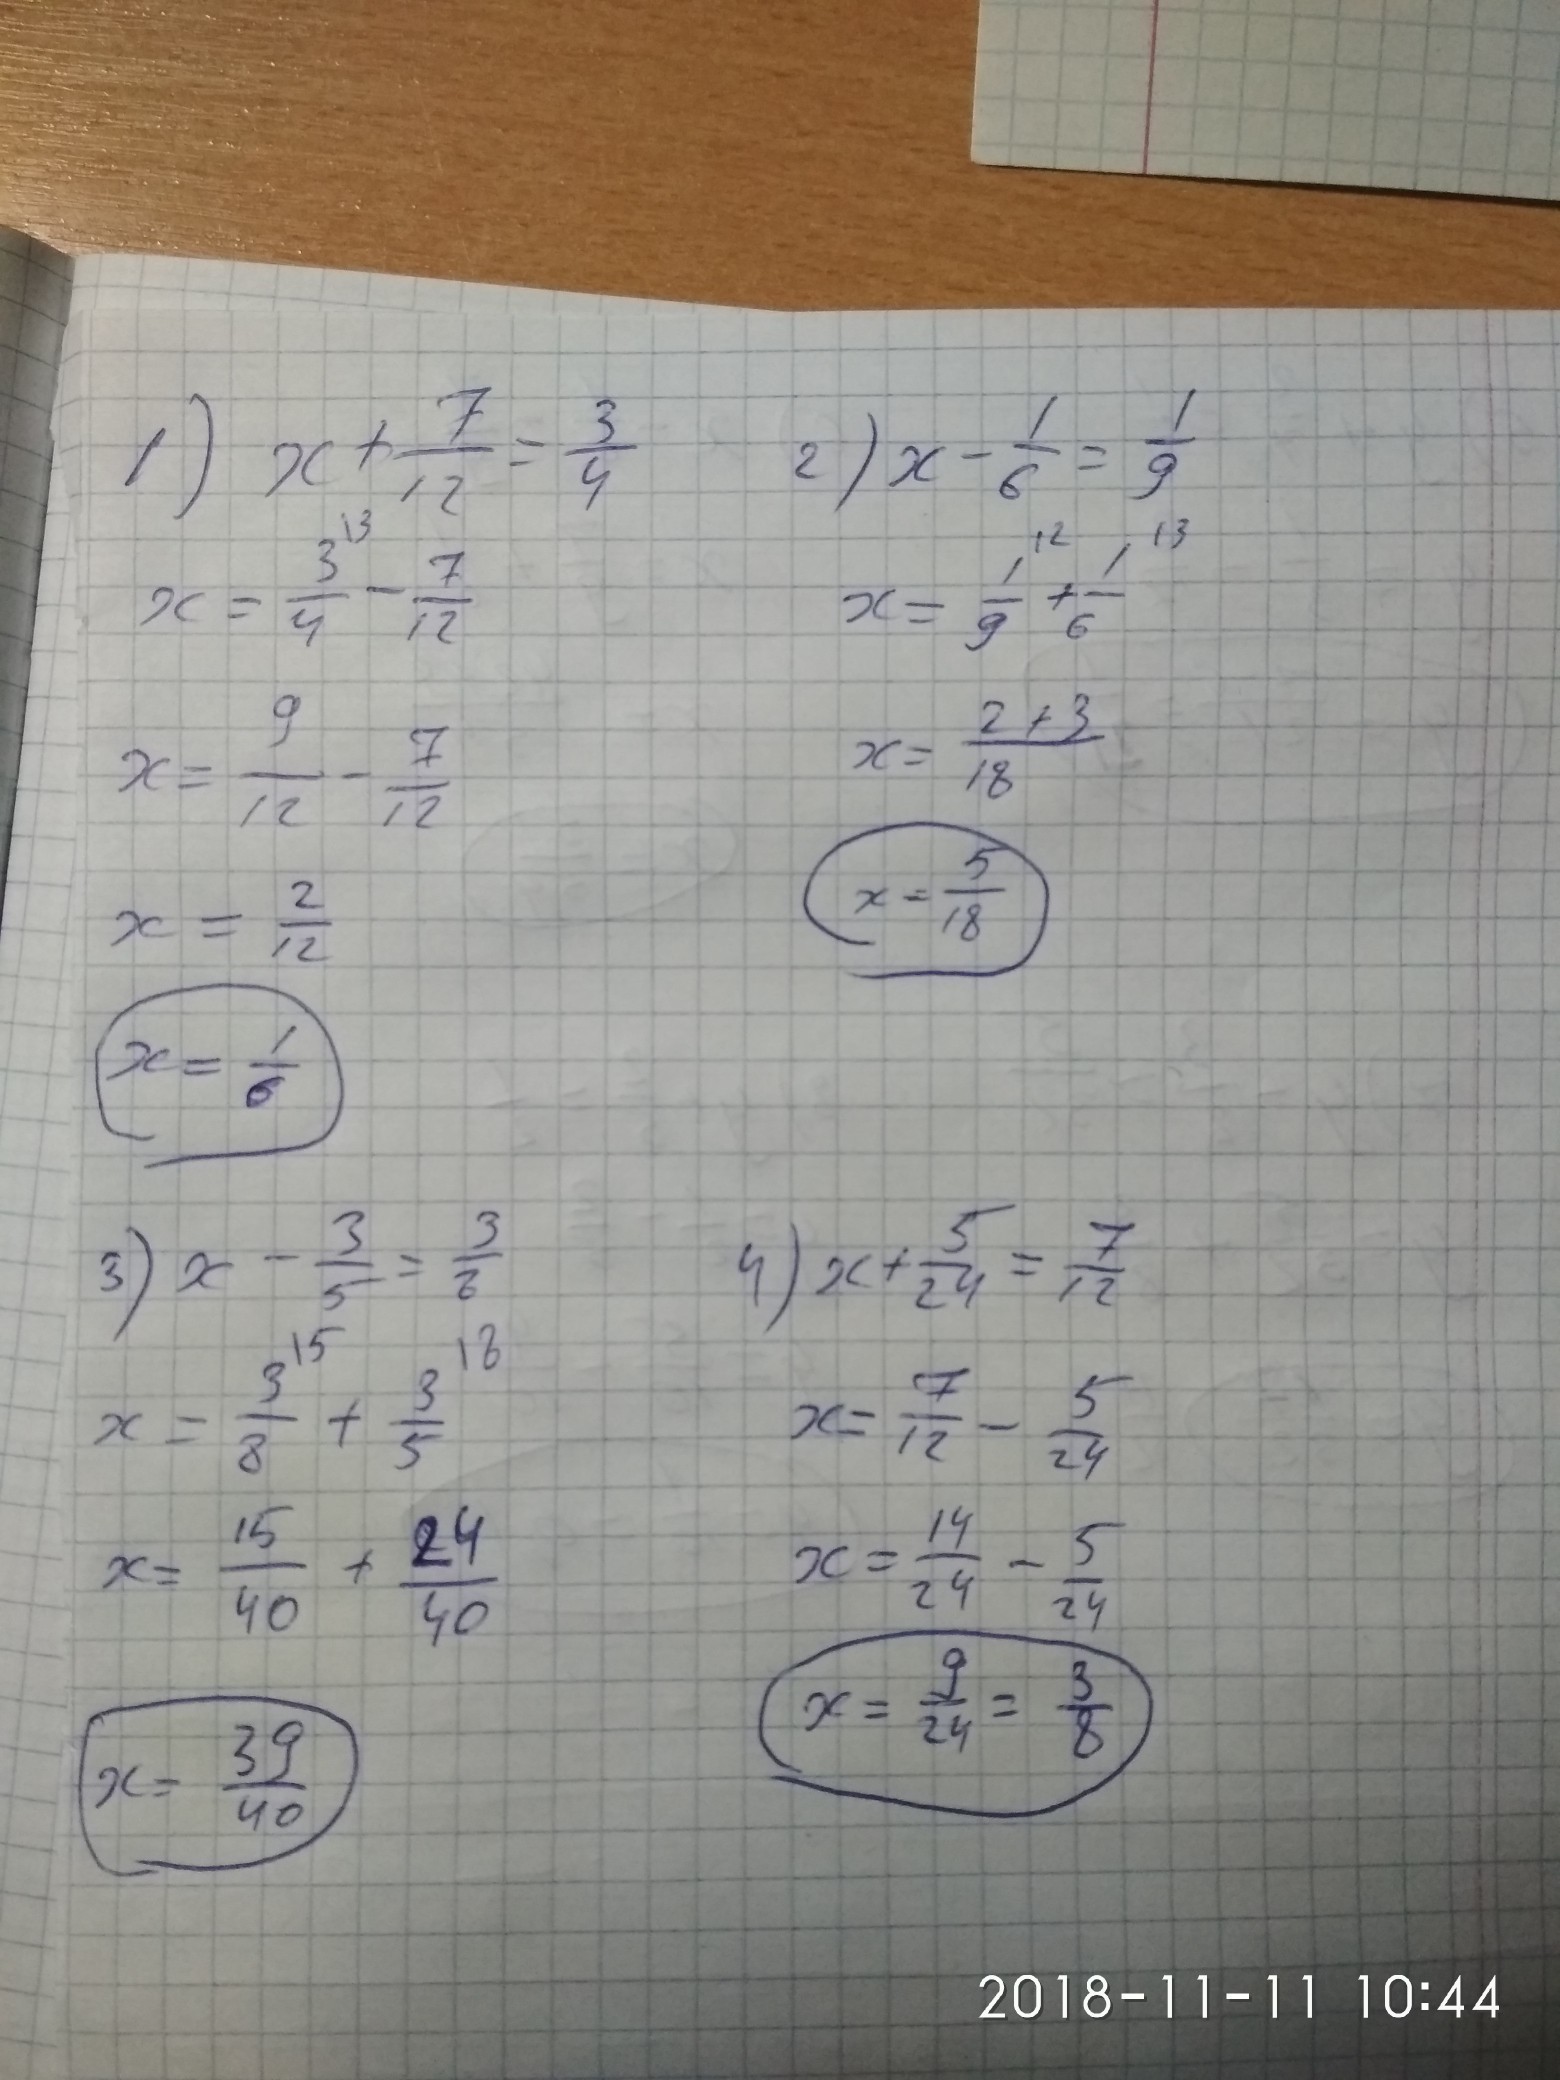 1) x + 7/12 = 3/4
x = 3/4 |3 − 7/12
x = 9/12 − 7/12
x = 2/12
x = 1/6
2) x − 1/6 = 1/9
x = 1/9 |2 + 1/6 |3
x = (2 + 3)/18
x = 5/18
3) x − 3/5 = 3/8
x = 3/8 |5 + 3/5 |8
x = 15/40 + 24/40
x = 39/40
4) x + 5/24 = 7/12
x = 7/12 − 5/24
x = 14/24 − 5/24
x = 9/24 = 3/8
2018-11-11 10:44